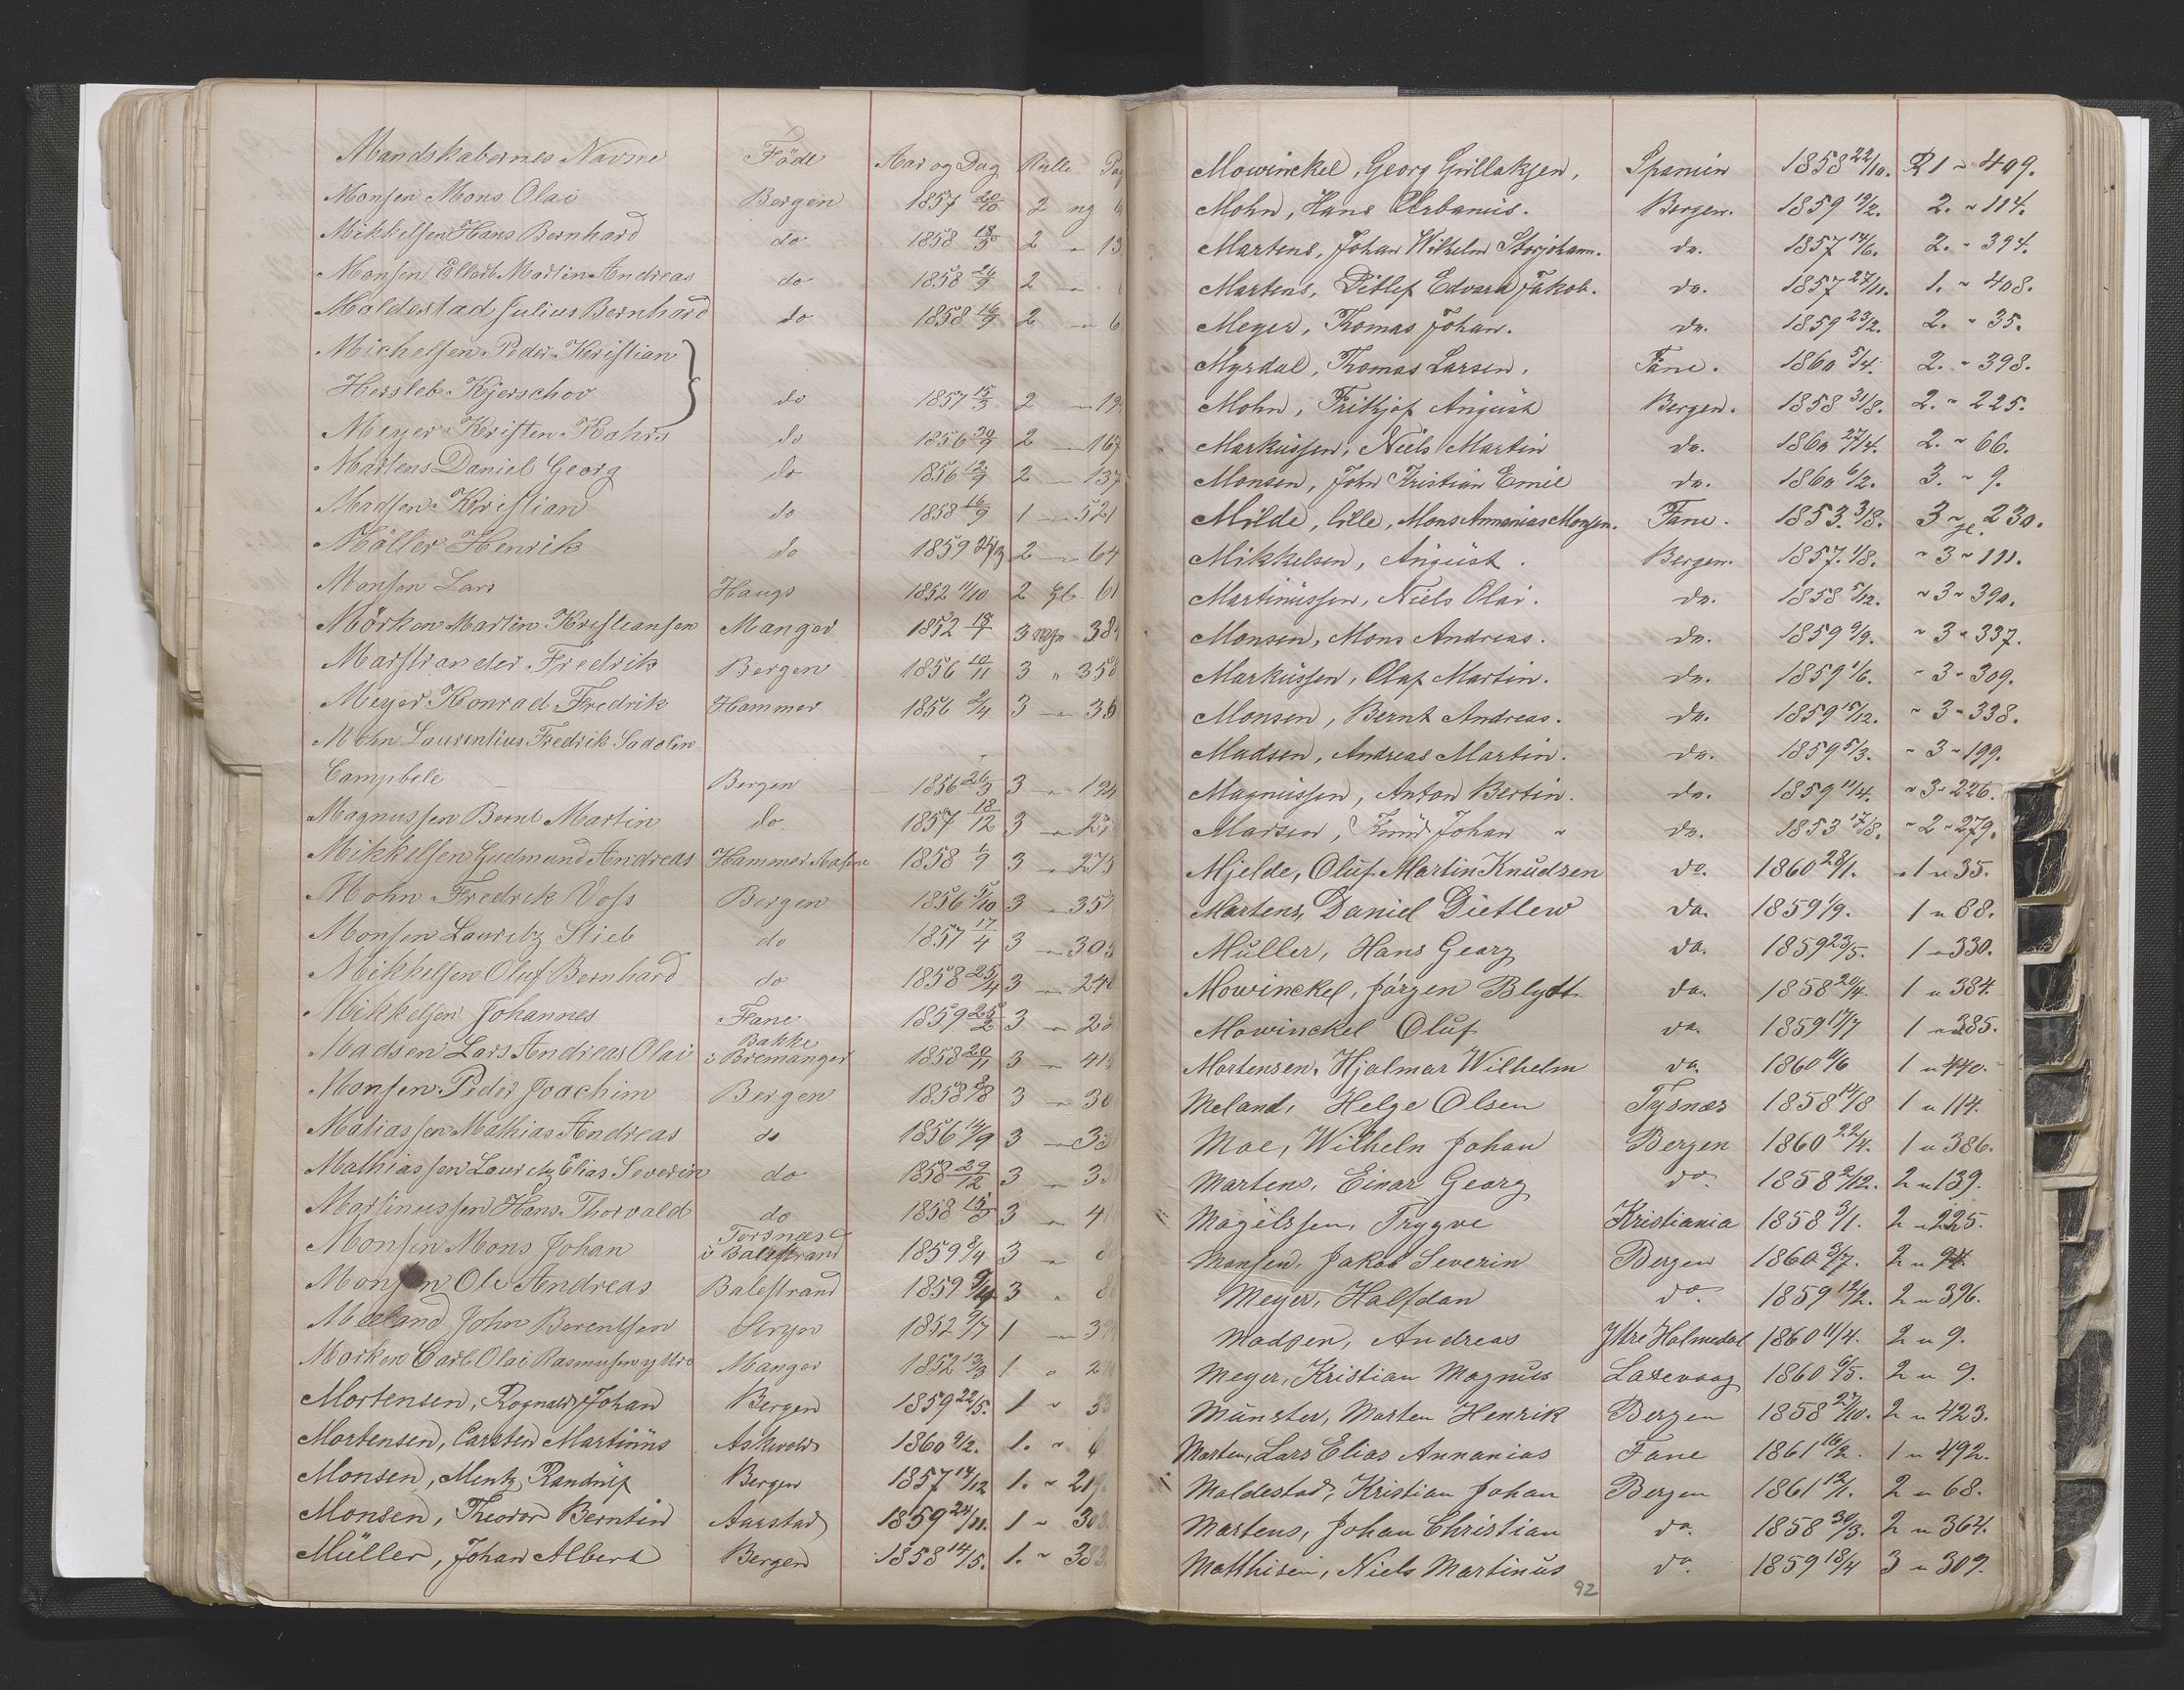 Mandskabernes Navne Födt Aar og Dag Rulle Pag
Monsen Mons Olai Bergen 1857 20/10 2 ng 6
Mikkelsen Hans Bernhard do 1858 18/5 2 " 13
Monsen Ellert Martin Andreas do 1858 26/9 2 "
Moldestad Julius Bernhard do 1858 16/9 2 " 6
Michelsen Peder Kristian
Hersleb Kjerschov do 1857 15/3 2 " 19
Meyer Kristen Kahrs do 1856 30/9 2 " 167
Martens Daniel Georg do 1856 12/9 2 " 137
Madsen Kristian do 1858 16/9 1 " 521
Möller Henrik do 1859 2 " 64
Monsen Lars Haugs 1852 11/10 2 gl. 61
Mörken Martin Kristiansen Manger 1852 18/7 3 38
Marstrander Fredrik Bergen 1856 10/11 3 " 358
Meyer Konrad Fredrik Hammer 1856 2/4 3 " 36
Mohn Laurentius Fredrik Sadolin
Campbell Bergen 1856 26/3 3 " 194
Magnussen Bernt Martin do 1857 18/12 3 " 2
Mikkelsen Gudmund Andreas Hammer 1858 1/9 3 " 275
Mohn Fredrik Voss Bergen 1856 5/10 3 " 35
Monsen Lauritz Stieb do 1857 17/4 3 " 305
Mikkelsen Oluf Bernhard do 1858 25/4 3 " 24
Mikkelsen Johannes Fane 1859 25/2 3 " 2
Bakke
Madsen Lars Andreas Olai i Bremanger 1858 20/11 3 " 41
Monsen Peder Joachim Bergen 1858 8/8 3 " 30
Matiassen Mathias Andreas do 1856 14/9 3 " 33
Mathiassen Lauritz Elias Severin do 1858 29/12 3 " 33
Martinussen Hans Thorvald do 1858 3 " 4
Torsnees
Monsen Mons Johan i Balestrand 1859 8/4 3 " 8
Monsen Ole Andreas Balestrand 1859 3 " 8
Meeland John Berentsen Stryn 1852 9/7 1 " 39
Morken Carl Olai Rasmusen yttre Manger 1852 13/3 1 " 2
Mortensen, Rognald Johan Bergen 1859 22/5. 1 " 33
Mortensen, Carsten Martinus Askvold 1860 9/2. 1. " 6
Monsen, Mentz Randulf Bergen 1857 14/12 1. " 21
Monsen, Theodor Berntin Aarstad 1859 24/11. 1 " 303.
Müller, Johan Albert Bergen 1858 14/5. 1. " 383.
Mowinckel, Georg Grillaksen, Spanien 1858 22/10. R1 " 409.
Mohn, Hans Urbanus. Bergen. 1859 19/2. 2. " 114.
Martens, Johan Wilhelm Storjohann. do. 1857 14/6. 2. " 394.
Martens, Ditlef Edvard Jakob. do. 1857 27/11. 1. " 408.
Meyer, Thomas Johan. do. 1859 23/2. 2. " 35.
Myrdal, Thomas Larsen. Fane. 1860 5/4. 2. " 398.
Mohn, Frithjof August Bergen. 1858 31/8. 2. " 225.
Markussen, Niels Martin do. 1860 27/4. 2. " 66.
Monsen, John Kristian Emil do. 1860 6/2. 3. " 9.
Milde, lille, Mons Annanias Monsen. Fane. 1853 3/8. 3 " gl. 230.
Mikkelsen, August. Bergen. 1857. 1/8. " 3 " 111.
Martinussen, Niels Olai. do. 1858 5/12. " 3 " 390.
Monsen, Mons Andreas. do. 1859 9/9. " 3 " 337.
Markussen, Olaf Martin. do. 1859 1/6. " 3 " 309.
Monsen, Bernt Andreas. do. 1859 15/12. " 3 " 338.
Madsen, Andreas Martin. do. 1859 5/3. " 3 " 199.
Magnussen, Anton Bertin. do. 1859 11/4. " 3 " 226.
Madsen, Knud Johan " do. 1853 17/8. " 2 " 279.
Mjelde, Oluf Martin Knudsen do. 1860 28/1. " 1 " 35.
Martens, Daniel Dietlew do. 1859 1/9. 1 " 88.
Müller, Hans Georg do. 1859 23/5. 1 " 330.
Mowinckel, Jörgen Blydt do. 1858 20/4. 1 " 384.
Mowinckel Oluf do. 1859 17/7 1 " 385.
Mortensen, Hjalmar Wilhelm do. 1860 1 " 440.
Meland, Helge Olsen Tysnæs 1858 14/8 1 " 114.
Moe, Wilhelm Johan Bergen 1860 22/4. 1 " 386.
Martens, Einar Georg do. 1858 2/12. 2 " 139.
Magelssen, Trygve Kristiania 1858 3/1. 2 " 225.
Monsen, Jakob Severin Bergen 1860 3/7. 2 " 94
Meyer, Halfdan do. 1859 12/2. 2 " 396.
Madsen, Andreas Yttre Holmedal 1860 11/4. 2 " 9.
Meyer, Kristian Magnus Laxevaag 1860 6/5. 2 " 9.
Münster, Morten Henrik Bergen 1858 27/10. 2 " 423.
Morten, Lars Elias Annanias Fane 1861 16/2. 1 " 492.
Moldestad, Kristian Johan Bergen 1861 12/1. 2 " 68.
Martens, Johan Christian do. 1858 30/3. 2 " 364.
Matthisen, Niels Martinus do. 1859 18/4 3 " 309.
92